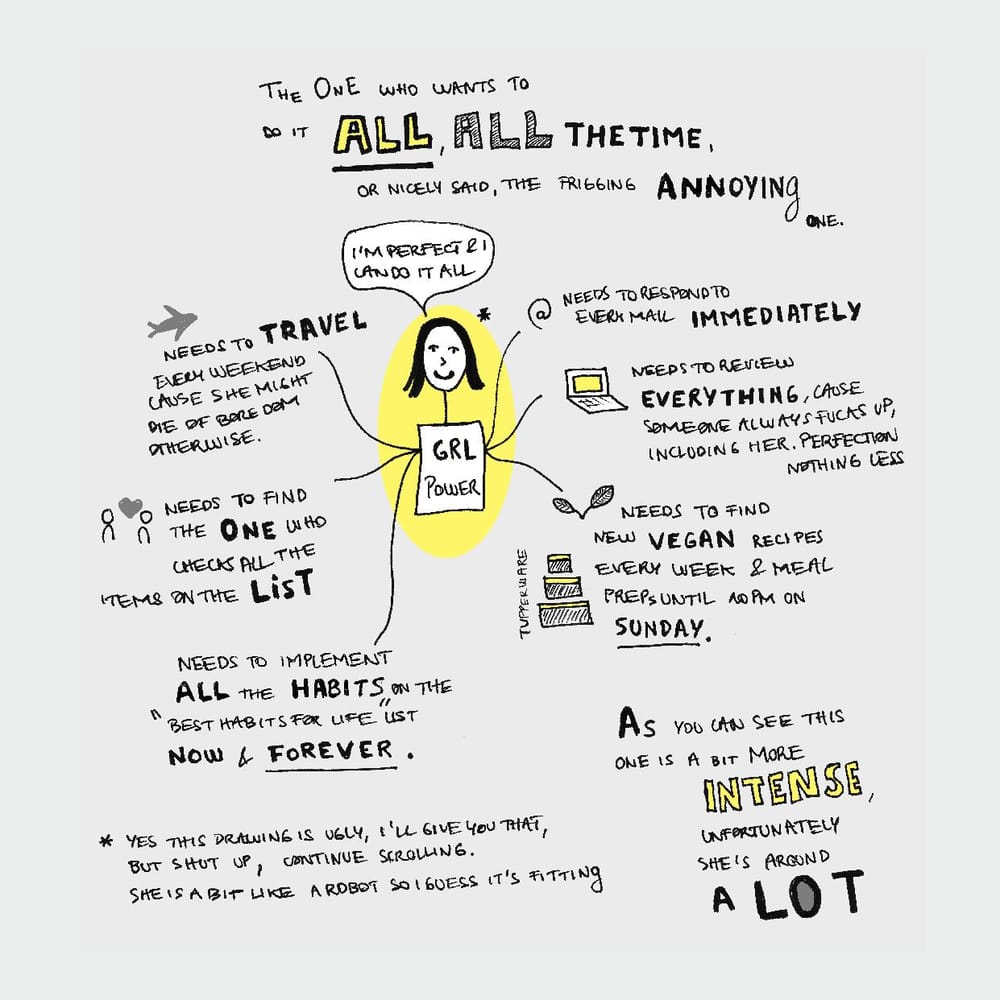 THE ONE WHO WANTS TO
DO IT ALL, ALL THE TIME,
OR NICELY SAID, THE FRIGGING ANNOYING
ONE.
I'M PERFECT & I
CAN DO IT ALL
*
GRL
POWER
NEEDS TO TRAVEL
EVERY WEEKEND
CAUSE SHE MIGHT
DIE OF BOREDOM
OTHERWISE.
@ NEEDS TO RESPOND TO
EVERY MAIL IMMEDIATELY
NEEDS TO REVIEW
EVERYTHING, CAUSE
SOMEONE ALWAYS FUCKS UP,
INCLUDING HER. PERFECTION
NOTHING LESS
NEEDS TO FIND
THE ONE WHO
CHECKS ALL THE
ITEMS ON THE LIST
NEEDS TO FIND
NEW VEGAN RECIPES
EVERY WEEK & MEAL
PREPS UNTIL 10 PM ON
SUNDAY.
TUPPERWARE
NEEDS TO IMPLEMENT
ALL THE HABITS ON THE
"BEST HABITS FOR LIFE" LIST
NOW & FOREVER.
AS YOU CAN SEE THIS
ONE IS A BIT MORE
INTENSE,
UNFORTUNATELY
SHE'S AROUND
A LOT
* YES THIS DRAWING IS UGLY, I'LL GIVE YOU THAT,
BUT SHUT UP, CONTINUE SCROLLING.
SHE IS A BIT LIKE A ROBOT SO I GUESS IT'S FITTING